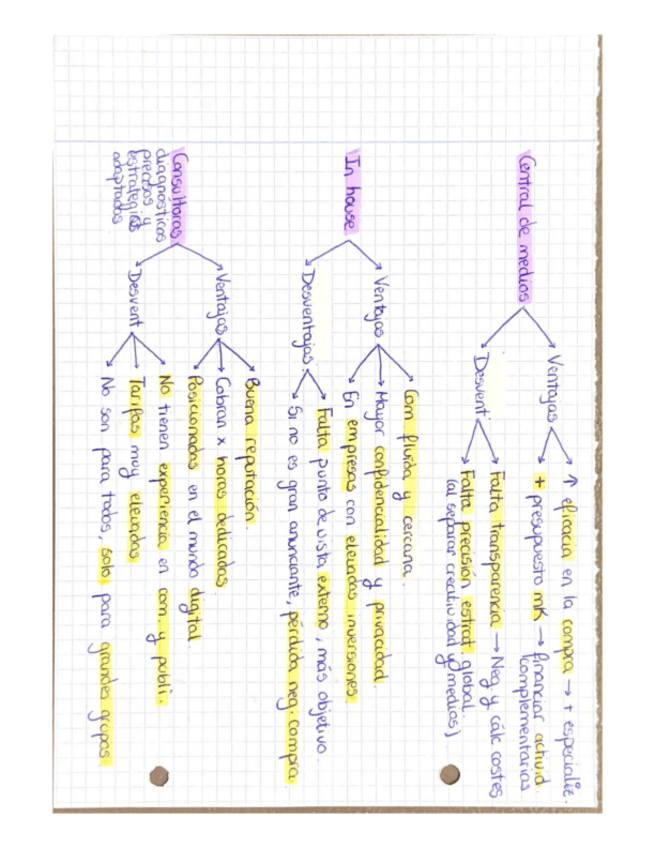 Central de medios
Ventajas
↑ eficacia en la compra → + especialie.
+ presupuesto mK → financiar activid.
complementarias
Desvent.
Falta transparencia → Neg y cálc costes
Falta precisión estrat. global.
(al separar creatividad y medios)
In house
Ventajas
Com fluída y cercana.
Mayor confidencialidad y privacidad.
En empresas con elevadas inversiones.
Desventajas.
Falta punto de vista externo, más objetivo.
Si no es gran anunciante, pérdida neg. compra
Consultoras
diagnosticos
precisos y
estrategias
adaptados
Ventajas
Buena reputación.
Cobran x horas dedicadas
Posicionadas en el mundo digital.
Desvent.
No tienen experiencia en com. y publi.
Tarifas muy elevadas
No son para todos, solo para grandes grupos.